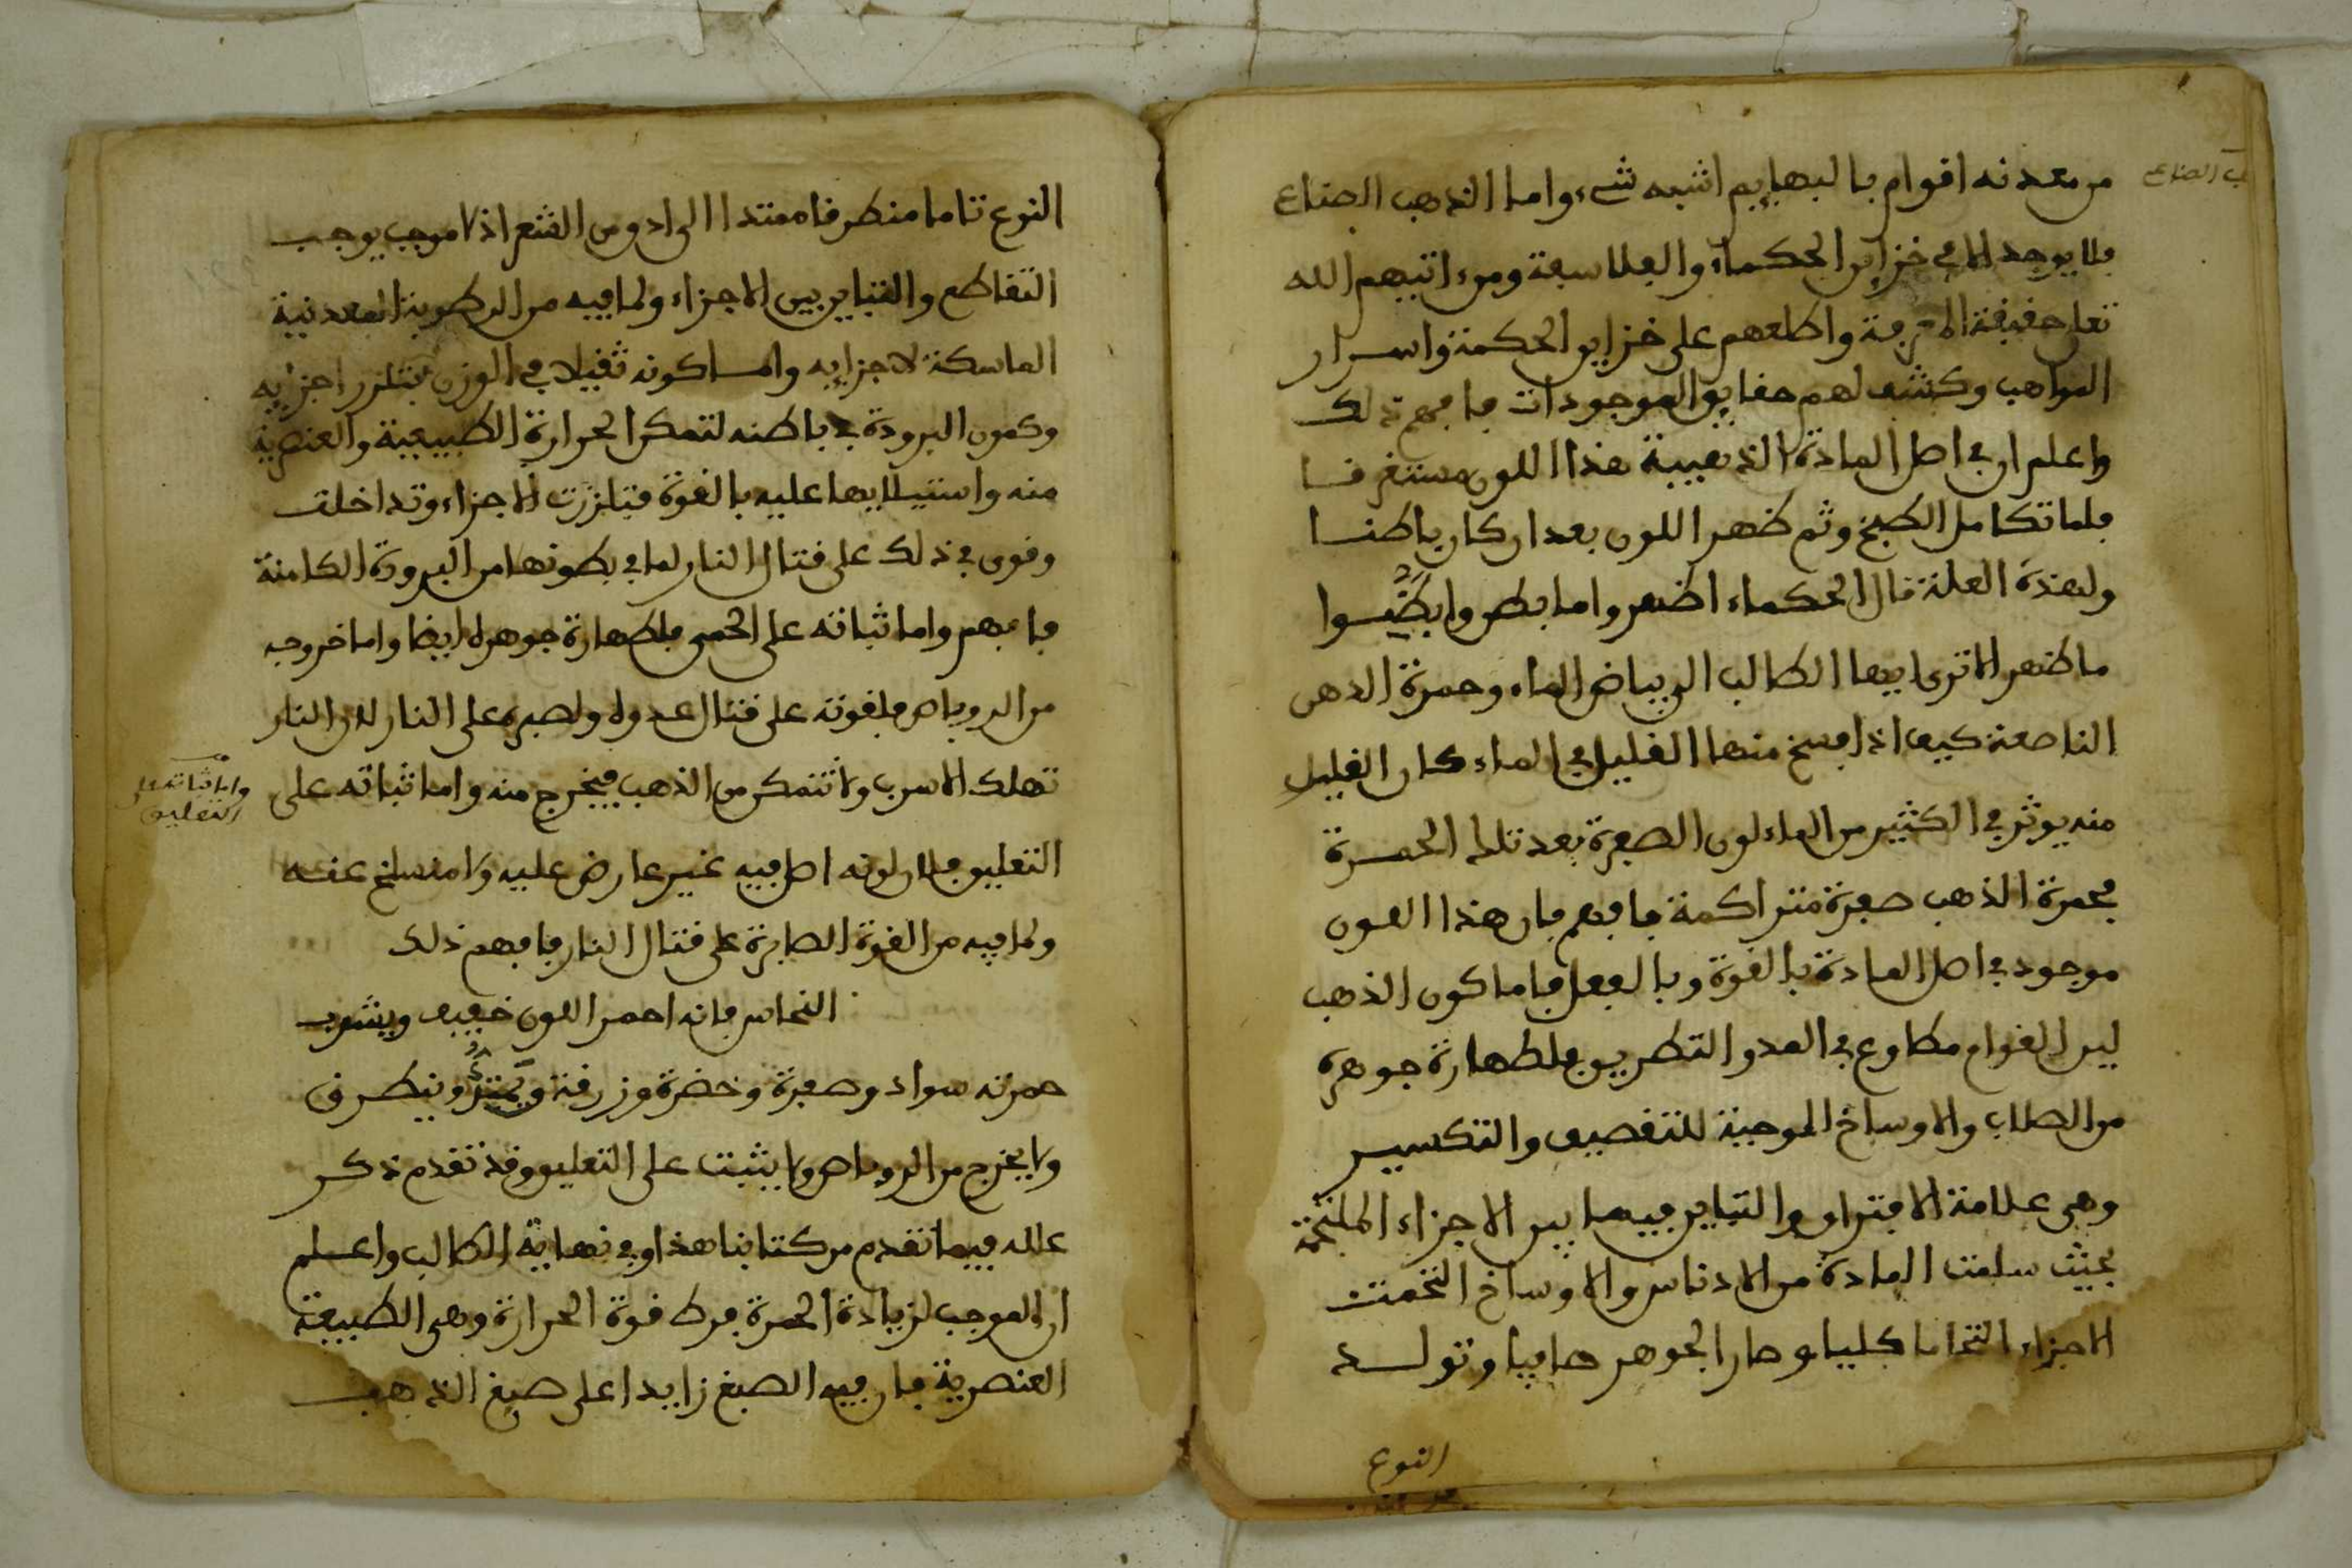 من معدنه اقوام بالبهايم اشبه شيء واما الذهب الصناع
فلا يوجد الا في خزاين الحكماء والفلاسفة ومن اتيهم الله
تعلى حقيقة المعرفة واطلعهم على خزاين الحكمة واسرار
المواهب وكشف لهم حقايق الموجودات فافهم ذلك
واعلم ان في اصل المادة الذهبية هذا اللون مستغرقا
فلما تكامل الطبخ وتم ظهر اللون بعد ان كان باطنا
ولهذه العلة قال الحكماء اظهروا ما بطن وابطنوا
ما ظهر الا ترى ايها الطالب الى بياض الماء وحمرة الدهن
الناصعة كيف اذا فسخ منها القليل في الماء كان القليل
منه يوثر في الكثير من الماء لون الصفرة بعد تلك الحمرة
فحمرة الذهب صفرة متراكمة فافهم فان هذا اللون
موجود في اصل المادة بالقوة وبالفعل فاما كون الذهب
لين القوام مطاوع في المد والتطريق فلطهارة جوهره
من الصلاب والاوساخ الموجبة للتقصيف والتكسير
وهي علامة الافتراق والتباين فيها بين الاجزاء الملتحمة
بحيث سلمت المادة من الادناس والاوساخ التحمت
الاجزاء التحاما كليا وصار الجوهر صافيا وتولد
النوع
النوع تاما منطرقا ممتدا الى ادق من القشع اذ لا موجب يوجب
التقاطع والتباين بين الاجزاء ولما فيه من الرطوبة المعدنية
الماسكة لاجزايه واما كونه ثقيلا في الوزن فتلزز اجزايه
وكمون البرودة في باطنه لتمكن الحرارة الطبيعية والعنصرية
منه واستيلايها عليه بالقوة فتلززت الاجزاء وتداخلت
وقوى في ذلك على قتال النار لما في بطونها من البرودة الكامنة
فافهم واما ثباته على الحمى فلطهارة جوهره ايضا واما خروجه
من الروباص فلقوته على قتال عدوه ولصبره على النار لان النار
تهلك الاسرب ولا تتمكن من الذهب فيخرج منه واما ثباته على
واما ثباته على
التعليق
التعليق فلان لونه اصل فيه غير عارض عليه ولا منسلخ عنه
ولما فيه من القوة الصابرة على قتال النار فافهم ذلك
النحاس فانه احمر اللون خفيف ويشوب
حمرته سواد وصفرة وخضرة وزرقة ويمتد وينطرق
ولا يخرج من الروباص ولا يثبت على التعليق وقد تقدم ذكر
علله فيما تقدم من كتابنا هذا وفي نهاية الطالب واعلم
ان الموجب لزيادة الحمرة فرط قوة الحرارة وهي الطبيعة
العنصرية فان فيه الصبغ زايدا على صبغ الذهب